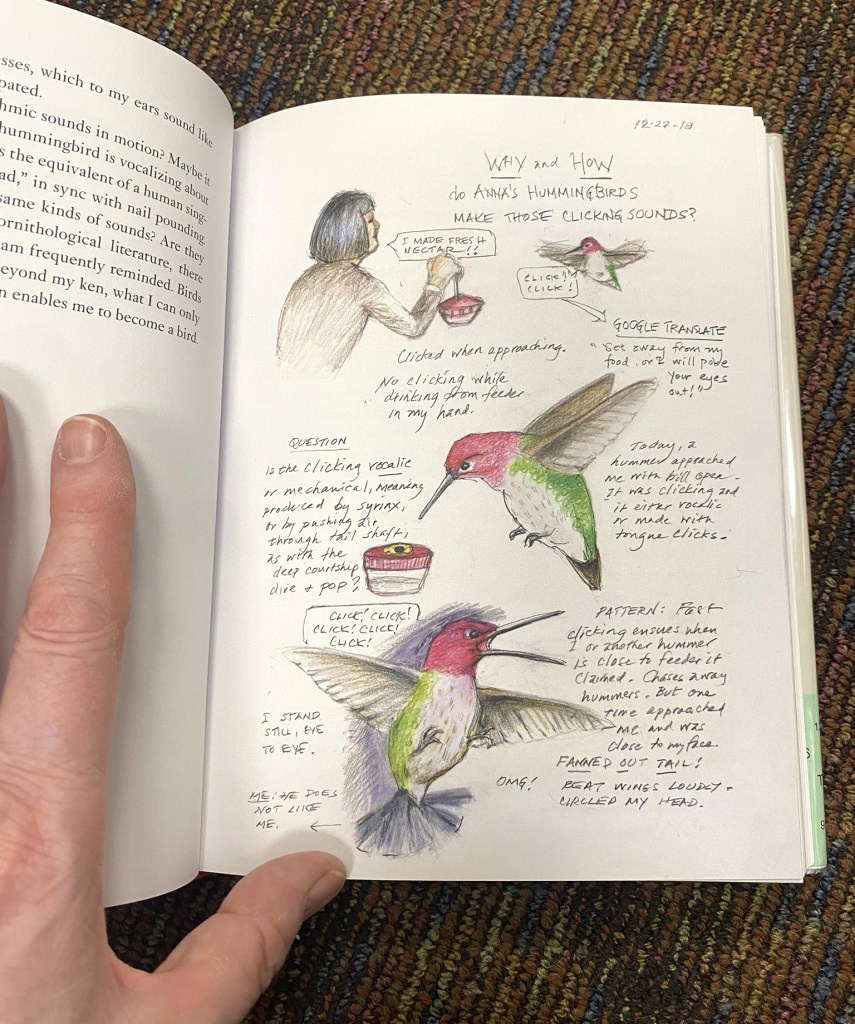 sses, which to my ears sound like
pated.
hmic sounds in motion? Maybe it
hummingbird is vocalizing about
s the equivalent of a human sing-
ad," in sync with nail pounding.
same kinds of sounds? Are they
ornithological literature, there
am frequently reminded. Birds
eyond my ken, what I can only
n enables me to become a bird.
12-27-18
WHY and HOW
do ANNA'S HUMMINGBIRDS
MAKE THOSE CLICKING SOUNDS?
I MADE FRESH
NECTAR!!
CLICK!
CLICK!
GOOGLE TRANSLATE
"Get away from my
food, or I will poke
your eyes
out!"
Clicked when approaching.
No clicking while
drinking from feeder
in my hand.
QUESTION
Is the clicking vocalic
or mechanical, meaning
produced by syrinx,
or by pushing air
through tail shaft,
as with the
deep courtship
dive + pop?
Today, a
hummer approached
me with bill open.
It was clicking and
it either vocalic
or made with
tongue clicks.
CLICK! CLICK!
CLICK! CLICK!
CLICK!
PATTERN: Fast
clicking ensues when
I or another hummer
is close to feeder it
claimed. Chases away
hummers. But one
time approached
me and was
close to my face.
FANNED OUT TAIL!
BEAT WINGS LOUDLY +
CIRCLED MY HEAD.
I STAND
STILL, EYE
TO EYE.
OMG!
ME: HE DOES
NOT LIKE
ME.